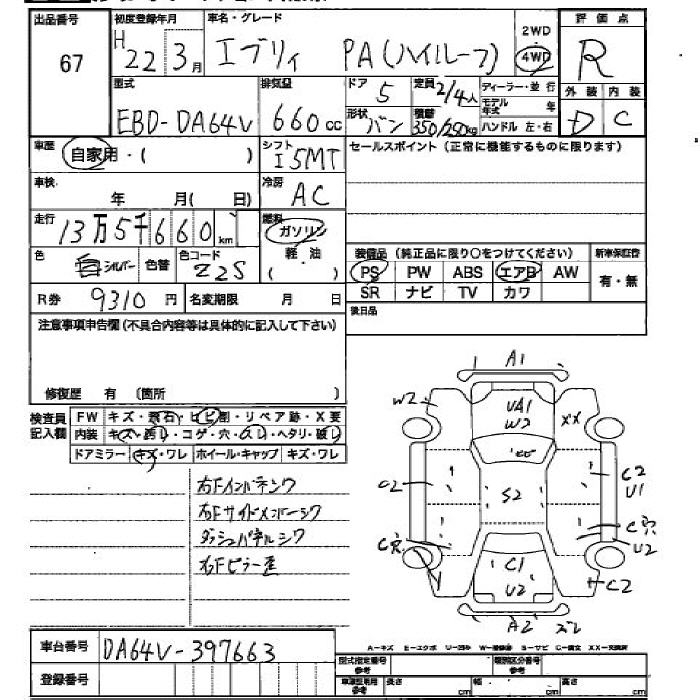 出品番号 初度登録年月 車名・グレード 評価点
67 H 22年 3月 エブリィ PA(ハイルーフ) 2WD 4WD R
型式 排気量 ドア 5 定員 2/4人 ディーラー・並行 外装 内装
EBD-DA64V 660cc 形状 バン 積載 350/250kg モデル年式 年 D C
ハンドル 左・右
車歴 自家用・( ) シフト I5MT セールスポイント(正常に機能するものに限ります)
車検 年 月( 日) 冷房 AC
走行 13万5千660km 燃料 ガソリン 軽油 ( )
装備品(純正品に限り○をつけてください) 新車保証書
色 シルバー 色替 色コード Z2S PS PW ABS エアB AW 有・無
R券 9310円 名変期限 月 日 SR ナビ TV カワ
注意事項申告欄(不具合内容等は具体的に記入して下さい) 後日品
修復歴 有(箇所 )
検査員記入欄 FW キズ・飛石・ヒビ割・リペア跡・X要
内装 キズ・汚レ・コゲ・穴・スレ・ヘタリ・破レ
ドアミラー キズ・ワレ ホイール・キャップ キズ・ワレ
A1
W2 UA1 XX
W2
ヒビ
C2 U1
S2
C穴 U2
C1
U2 C2
A2
右Fインパネシワ
右Fサイドメンバーシワ
ダッシュパネルシワ
右Fピラー歪
車台番号 DA64V-397663
A-キズ E-エクボ U-凹み W-補修跡 S-サビ C-腐食 XX-交換済
登録番号 型式指定番号 参考 類別区分番号 参考
長さ cm 幅 cm 高さ cm